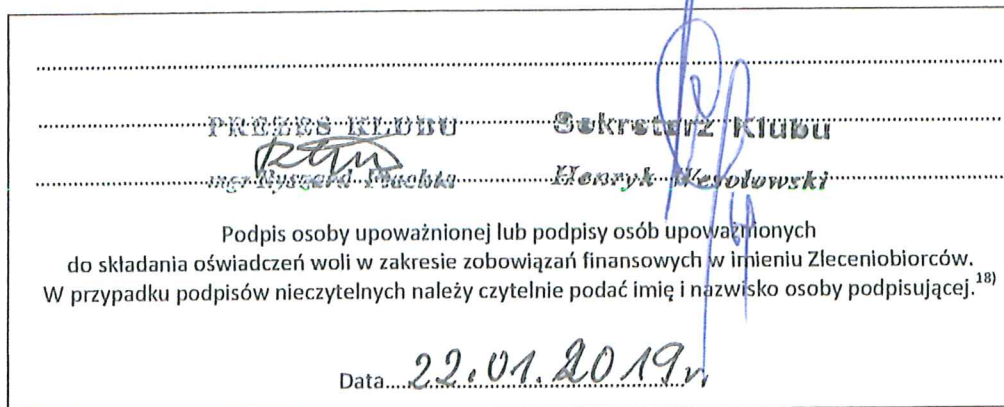 PREZES KLUBU Sekretarz Klubu
mgr Ryszard Płachta Henryk Wesołowski
Podpis osoby upoważnionej lub podpisy osób upoważnionych
do składania oświadczeń woli w zakresie zobowiązań finansowych w imieniu Zleceniobiorców.
W przypadku podpisów nieczytelnych należy czytelnie podać imię i nazwisko osoby podpisującej.18)
Data....22.01.2019r.